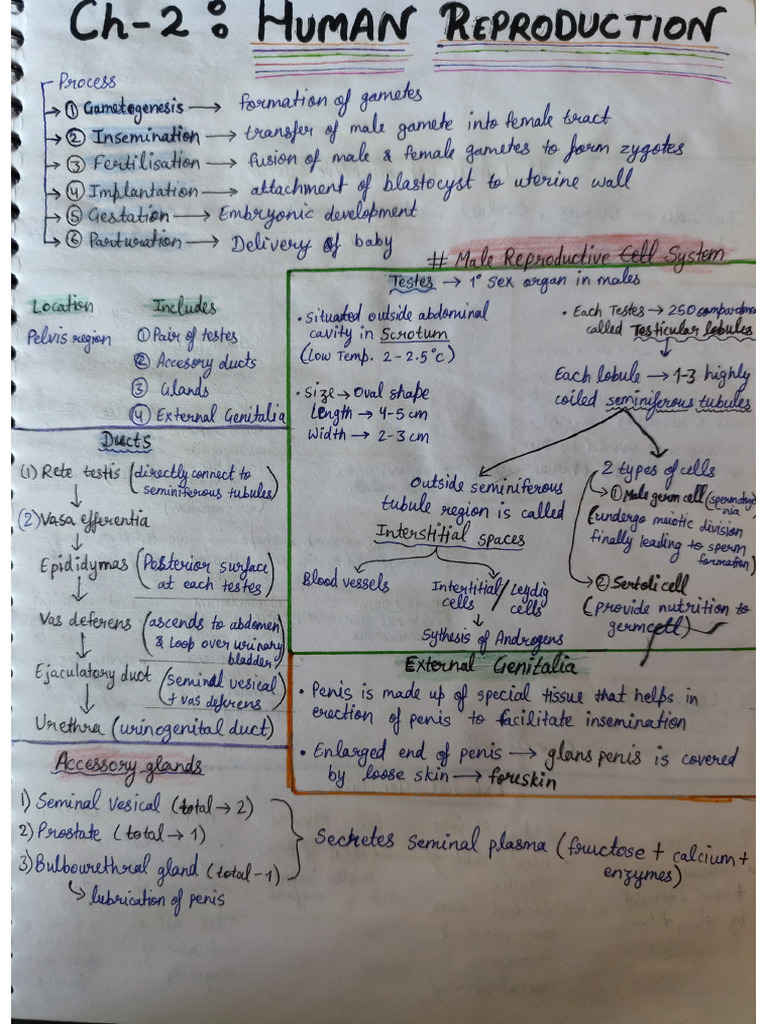 Ch-2 : HUMAN REPRODUCTION
Process
① Gametogenesis → formation of gametes
② Insemination → transfer of male gamete into female tract
③ Fertilisation → fusion of male & female gametes to form zygotes
④ Implantation → attachment of blastocyst to uterine wall
⑤ Gestation → Embryonic development
⑥ Parturation → Delivery of baby
# Male Reproductive Cell System
Location
Pelvis region
Includes
① Pair of testes
② Accesory ducts
③ Glands
④ External Genitalia
Testes → 1° sex organ in males
• Situated outside abdominal
cavity in Scrotum
(Low Temp. 2-2.5°c)
• Size → Oval shape
Length → 4-5 cm
Width → 2-3 cm
• Each Testes → 250 compartmen
called Testicular lobules
Each lobule → 1-3 highly
coiled seminiferous tubules
Outside seminiferous
tubule region is called
Interstitial spaces
Blood vessels
Intertitial / Leydig
cells cells
Sythesis of Androgens
2 types of cells
① Male germ cell (spermatogo
nia)
(undergo meiotic division
finally leading to sperm
formation)
② Sertoli cell
(provide nutrition to
germ cell)
Ducts
(1) Rete testis (directly connect to
seminiferous tubules)
(2) Vasa efferentia
Epididymas (Posterior surface
at each testes)
Vas deferens (ascends to abdomen
& Loop over urinary
bladder)
Ejaculatory duct (seminal vesical
+ vas deferens)
Urethra (urinogenital duct)
External Genitalia
• Penis is made up of special tissue that helps in
erection of penis to facilitate insemination
• Enlarged end of penis → glans penis is covered
by loose skin → foreskin
Accessory glands
1) Seminal Vesical (total → 2)
2) Prostate (total → 1)
3) Bulbourethral gland (total - 1)
↳ lubrication of penis
Secretes seminal plasma (fructose + calcium +
enzymes)